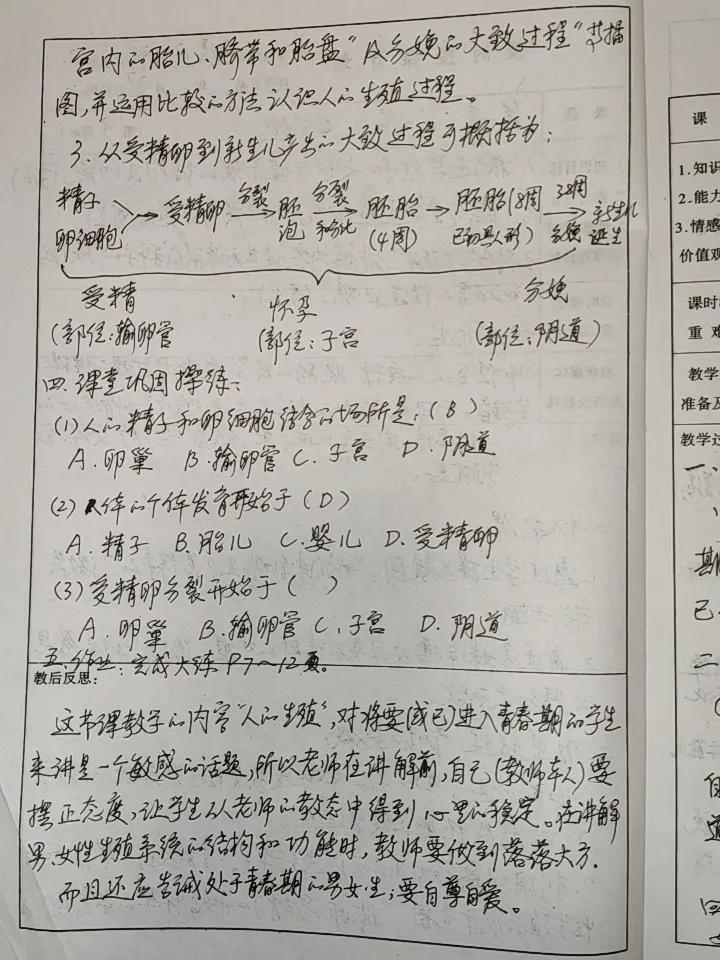 宫内的胎儿、脐带和胎盘”及“分娩的大致过程”等插
图,并运用比较的方法认识人的生殖过程。
3、从受精卵到新生儿产出的大致过程可概括为:
精子
卵细胞
→受精卵 分裂→ 胚泡 分裂和分化→ 胚胎(4周) → 胚胎(8周已初具人形) 38周分娩→ 新生儿诞生
受精 怀孕 分娩
(部位:输卵管 (部位:子宫 (部位:阴道)
四.课堂巩固操练:
(1)人的精子和卵细胞结合的场所是:(B)
A.卵巢 B.输卵管 C.子宫 D.阴道
(2)人体的个体发育开始于(D)
A.精子 B.胎儿 C.婴儿 D.受精卵
(3)受精卵分裂开始于( )
A.卵巢 B.输卵管 C.子宫 D.阴道
五.作业:完成大练P7~12页。
教后反思:
这节课教学的内容“人的生殖”,对将要(或已)进入青春期的学生
来讲是一个敏感的话题,所以老师在讲解前,自己(教师本人)要
摆正态度,让学生从老师的教态中得到心里的稳定。在讲解
男、女性生殖系统的结构和功能时,教师要做到落落大方.
而且还应告诫处于青春期的男女生;要自尊自爱。
课
1.知识
2.能力
3.情感
价值观
课时
重 难
教学
准备及
教学过
一、
期
已
二